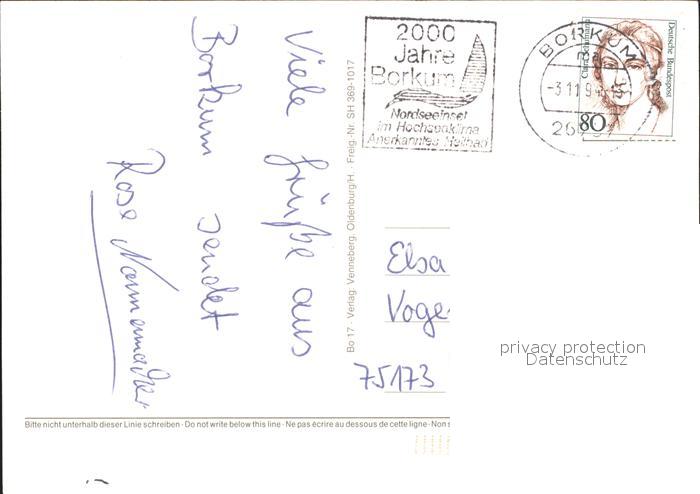 Viele Grüße aus
Borkum sendet
Rose Nonnenmacher
Bo 17 · Verlag: Venneberg, Oldenburg/H. · Freig.-Nr. SH 369-1017
2000
Jahre
Borkum
Nordseeinsel
im Hochseeklima
Anerkanntes Heilbad
BORKUM
-3.11.9
26
Deutsche Bundespost
80
Elsa
Voge
75173
privacy protection
Datenschutz
Bitte nicht unterhalb dieser Linie schreiben · Do not write below this line · Ne pas écrire au dessous de cette ligne · Non s